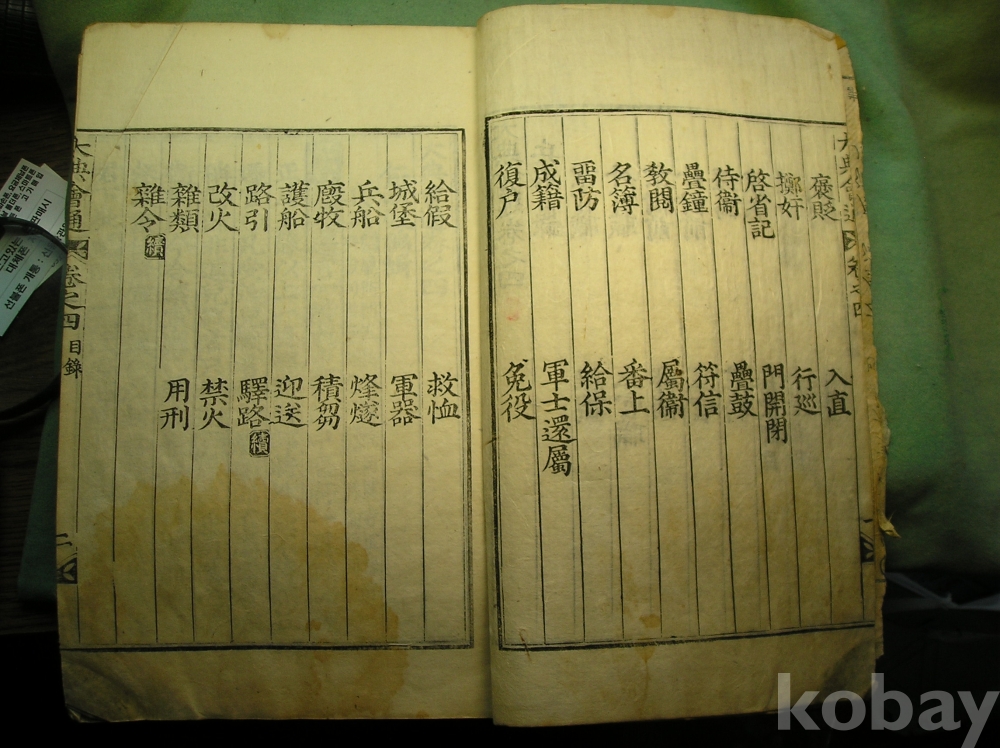 褒貶 入直
擲奸 行巡
啓省記 門開閉
侍衛 疊鼓
疊鐘 符信
敎閱 屬衛
名簿 番上
留防 給保
成籍 軍士還屬
復戶 免役
給假 救恤
城堡 軍器
兵船 烽燧
廐牧 積芻
護船 迎送
路引 驛路 續
改火 禁火
雜類 用刑
雜令 續
大典會通 卷之四 目錄
二
kobay